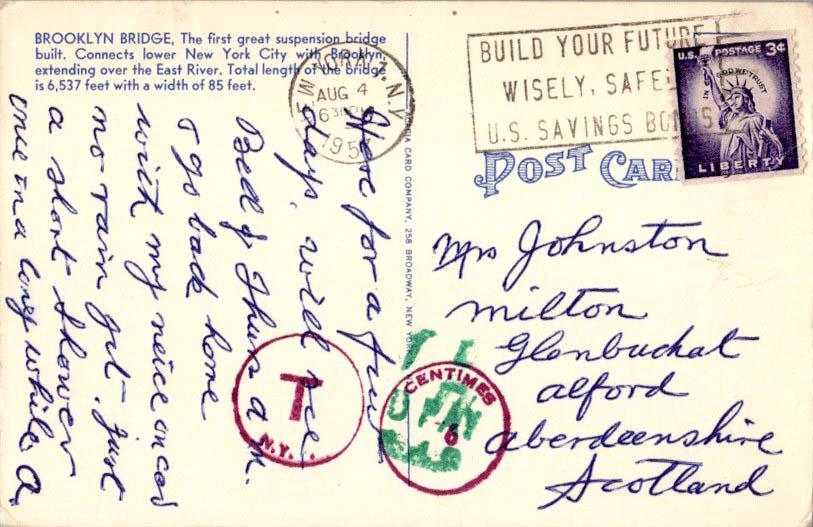 BROOKLYN BRIDGE, The first great suspension bridge
built. Connects lower New York City with Brooklyn,
extending over the East River. Total length of the bridge
is 6,537 feet with a width of 85 feet.
AUG 4
N.Y.
BUILD YOUR FUTURE
WISELY, SAFE
U.S. SAVINGS BONDS
U.S. POSTAGE 3¢
IN GOD WE TRUST
LIBERTY
POST CAR
CARD COMPANY, 258 BROADWAY, NEW YORK
Here for a few
days, will see
Bed & Thurs a.m.
& go back home
with my neice
no rain yet. Just
a short shower
once in a long while. A.
T
N.Y.
CENTIMES
6
Mrs Johnston
Milton
Glenbuchat
Alford
Aberdeenshire
Scotland